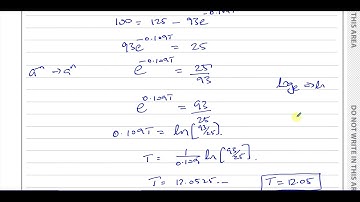 100 = 125 - 93e^{-0.109T}
93e^{-0.109T} = 25
a^n → a^n e^{-0.109T} = 25/93
log_e ⇒ ln
e^{0.109T} = 93/25
0.109T = ln[93/25].
T = 1/0.109 ln[93/25].
T = 12.0525... T = 12.05
THIS AREA
DO NOT WRITE IN THIS AR